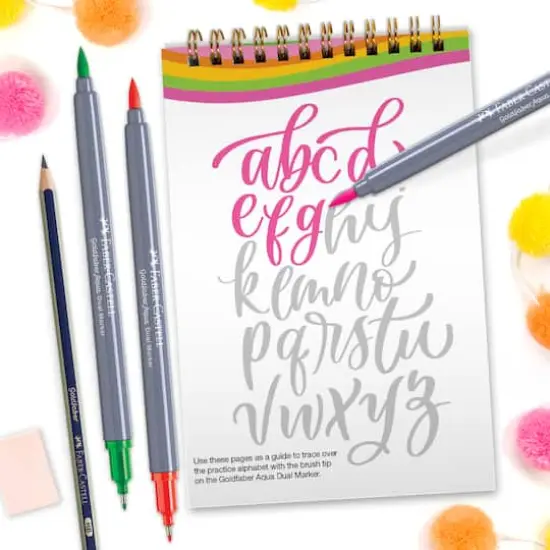 abcd
efghij
klmno
pqrstu
vwxyz
Use these pages as a guide to trace over
the practice alphabet with the brush tip
on the Goldfaber Aqua Dual Marker.
FABER-CASTELL
Goldfaber Aqua Dual Marker
FABER-CASTELL
Goldfaber Aqua Dual Marker
FABER-CASTELL
Goldfaber Aqua Dual Marker
Goldfaber
FABER-CASTELL